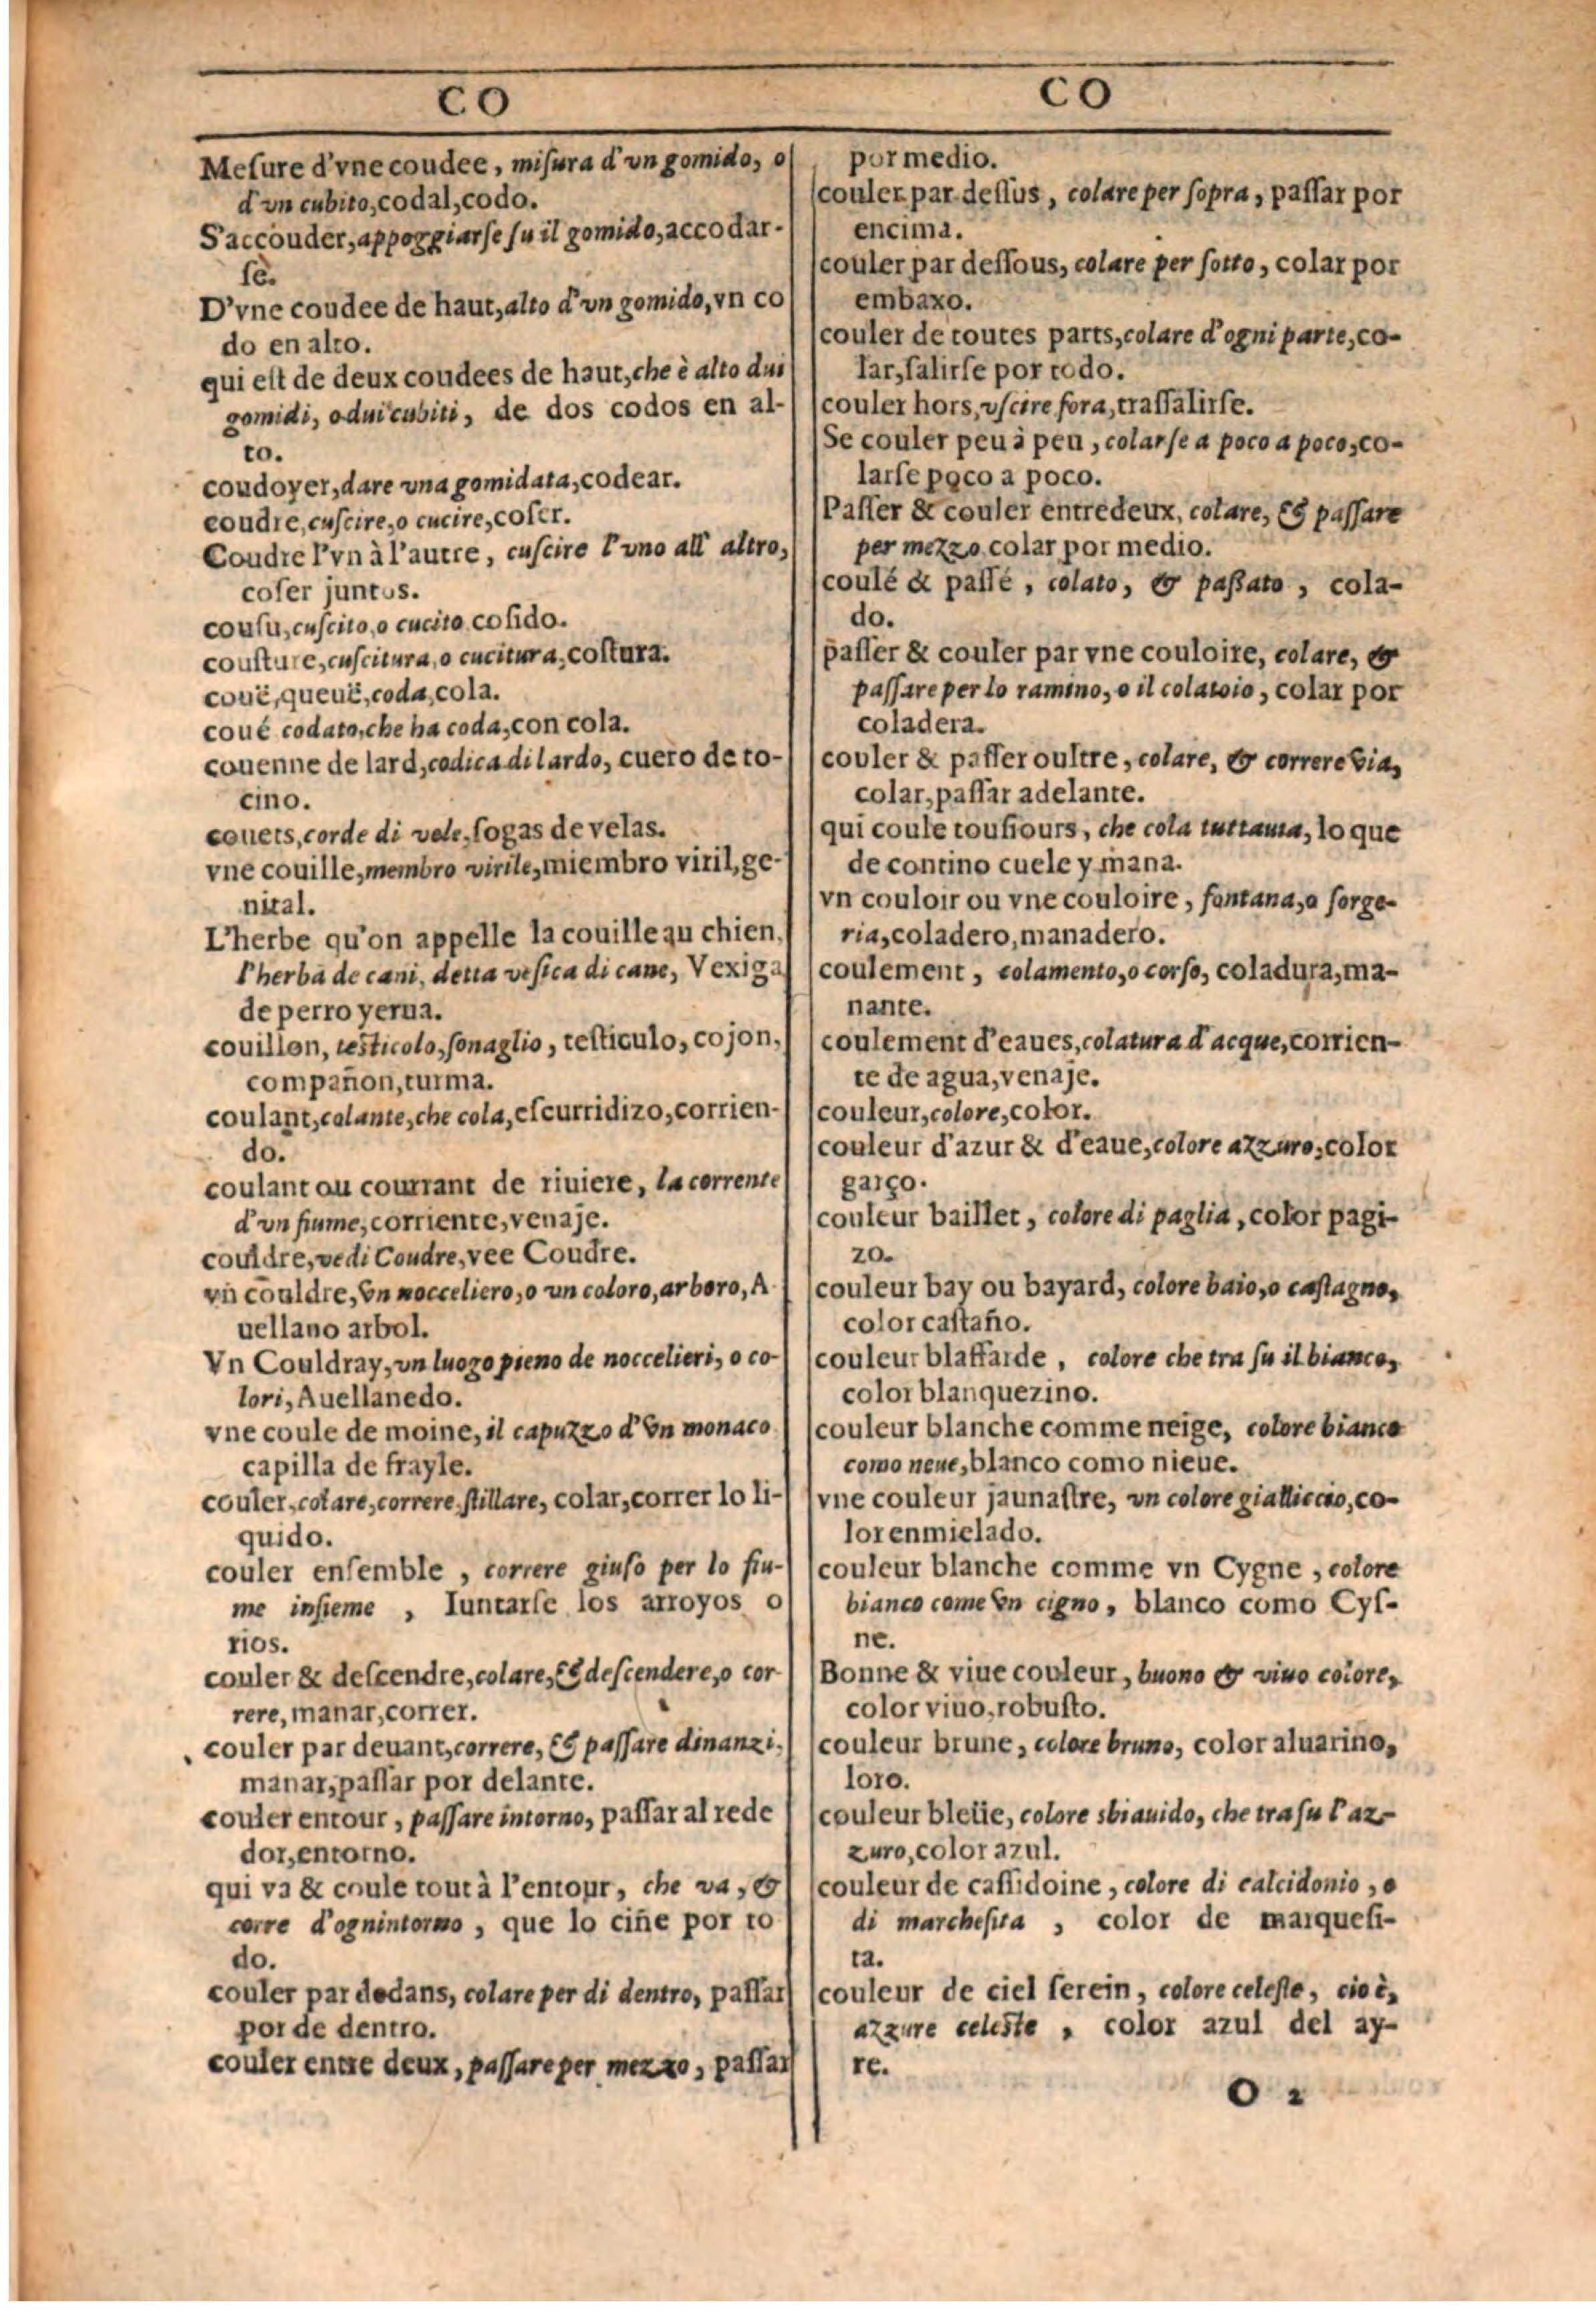 CO
Meſure d'vne coudee, miſura d'vn gomido, o
d'vn cubito, codal, codo.
S'accouder, appoggiarſe ſu il gomido, accodar-
ſe.
D'vne coudee de haut, alto d'vn gomido, vn co
do en alto.
qui eſt de deux coudees de haut, che è alto dui
gomidi, o dui cubiti, de dos codos en al-
to.
coudoyer, dare vna gomidata, codear.
coudre, cuſcire, o cucire, coſer.
Coudre l'vn à l'autre, cuſcire l'vno all' altro,
coſer juntos.
couſu, cuſcito, o cucito coſido.
couſture, cuſcitura, o cucitura, coſtura.
couë, queuë, coda, cola.
coué codato, che ha coda, con cola.
couenne de lard, codica di lardo, cuero de to-
cino.
couets, corde di vele, ſogas de velas.
vne couille, membro virile, miembro viril, ge-
nital.
L'herbe qu'on appelle la couille au chien,
l'herba de cani, detta veſica di cane, Vexiga
de perro yerua.
couillon, teſticolo, ſonaglio, teſticulo, cojon,
compañon, turma.
coulant, colante, che cola, eſcurridizo, corrien-
do.
coulant ou courrant de riuiere, la corrente
d'vn fiume, corriente, venaje.
couldre, vedi Coudre, vee Coudre.
vn couldre, vn nocceliero, o vn coloro, arboro, A
uellano arbol.
Vn Couldray, vn luogo pieno de noccelieri, o co-
lori, Auellanedo.
vne coule de moine, il capuzzo d'vn monaco
capilla de frayle.
couler, colare, correre, ſtillare, colar, correr lo li-
quido.
couler enſemble, correre giuſo per lo fiu-
me inſieme, Iuntarſe los arroyos o
rios.
couler & deſcendre, colare, & deſcendere, o cor
rere, manar, correr.
couler par deuant, correre, & paſſare dinanzi,
manar, paſſar por delante.
couler entour, paſſare intorno, paſſar al rede
dor, entorno.
qui va & coule tout à l'entour, che va, &
corre d'ognintorno, que lo ciñe por to
do.
couler par dedans, colare per di dentro, paſſar
por de dentro.
couler entre deux, paſſare per mezzo, paſſar
CO
por medio.
couler par deſſus, colare per ſopra, paſſar por
encima.
couler par deſſous, colare per ſotto, colar por
embaxo.
couler de toutes parts, colare d'ogni parte, co-
lar, ſalirſe por todo.
couler hors, vſcire fora, traſſalirſe.
Se couler peu à peu, colarſe a poco a poco, co-
larſe poco a poco.
Paſſer & couler entredeux, colare, & paſſare
per mezzo colar por medio.
coulé & paſſé, colato, & paſſato, cola-
do.
paſſer & couler par vne couloire, colare, &
paſſare per lo ramino, o il colatoio, colar por
coladera.
couler & paſſer oultre, colare, & correre via,
colar, paſſar adelante.
qui coule touſiours, che cola tuttauia, lo que
de contino cuele y mana.
vn couloir ou vne couloire, fontana, o ſorge-
ria, coladero, manadero.
coulement, colamento, o corſo, coladura, ma-
nante.
coulement d'eaues, colatura d'acque, corrien-
te de agua, venaje.
couleur, colore, color.
couleur d'azur & d'eaue, colore azzuro, color
garço.
couleur baillet, colore di paglia, color pagi-
zo.
couleur bay ou bayard, colore baio, o caſtagno,
color caſtaño.
couleur blaffarde, colore che tra ſu il bianco,
color blanquezino.
couleur blanche comme neige, colore bianco
como neue, blanco como nieue.
vne couleur jaunaſtre, vn colore gialliccio, co-
lor enmielado.
couleur blanche comme vn Cygne, colore
bianco come vn cigno, blanco como Cyſ-
ne.
Bonne & viue couleur, buono & viuo colore,
color viuo, robuſto.
couleur brune, colore bruno, color aluarino,
loro.
couleur bleüe, colore sbiauido, che tra ſu l'az-
zuro, color azul.
couleur de caſſidoine, colore di calcidonio, o
di marcheſita, color de marqueſi-
ta.
couleur de ciel ſerein, colore celeſte, cio è,
azzure celeſte, color azul del ay-
re.
O 2